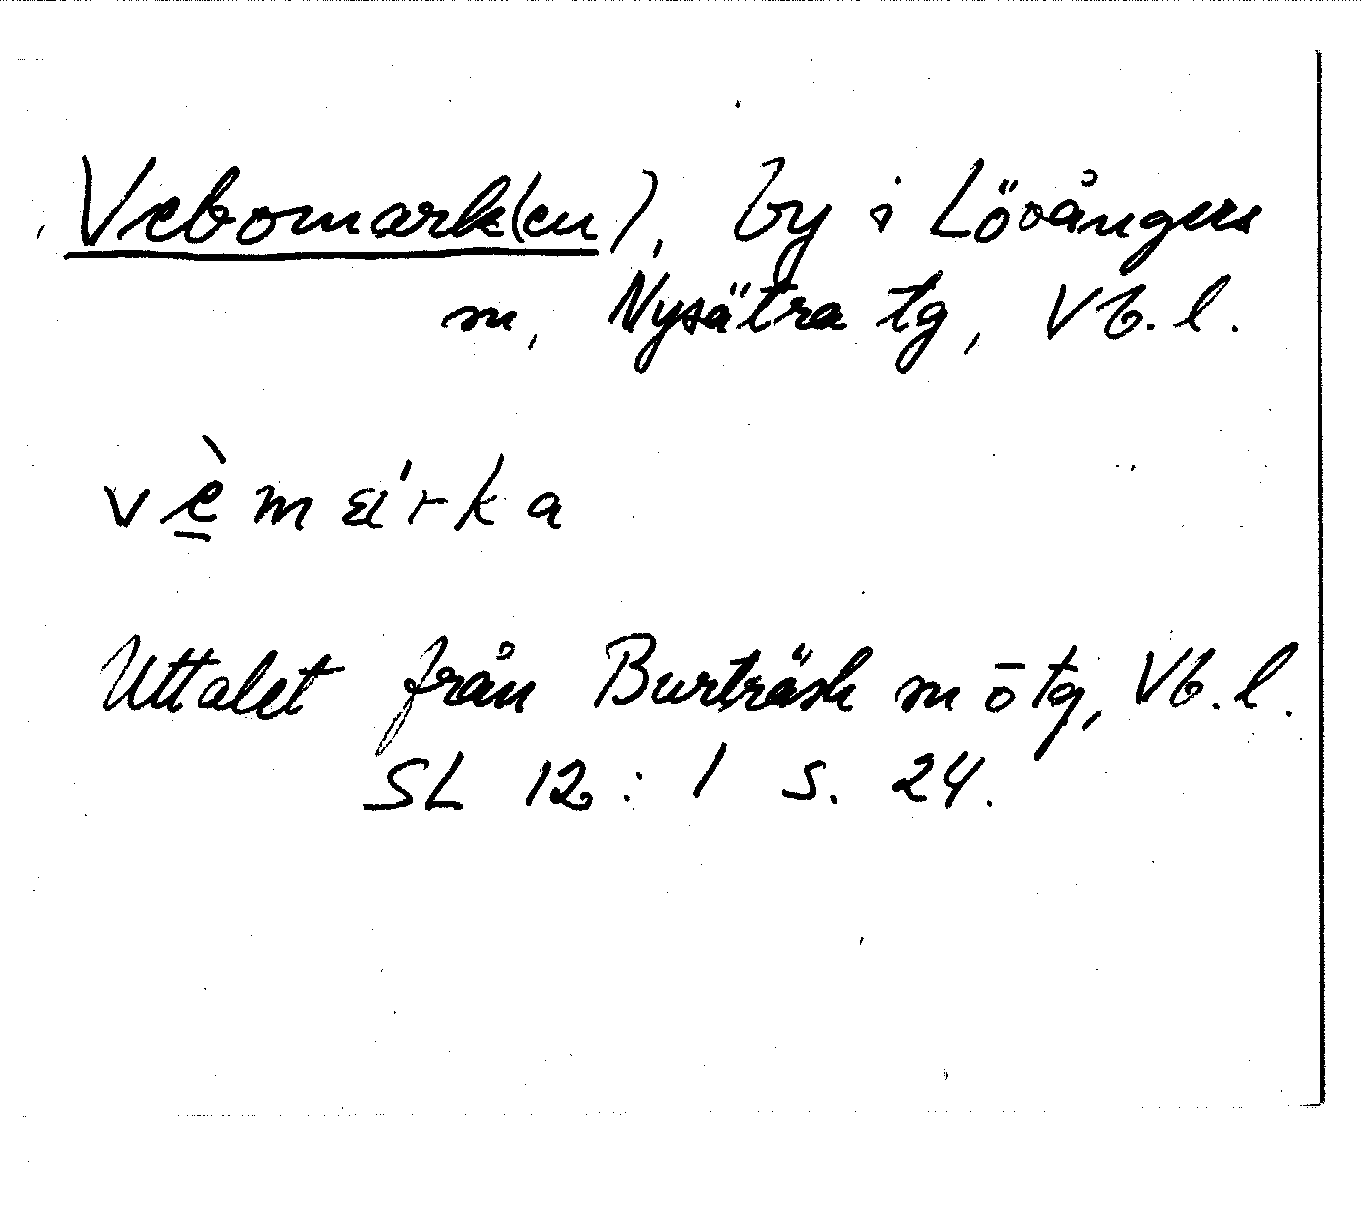 Vebomark(en), by i Lövångers
sn, Nysätra tg, Vb. l.
vè̠mɛi'rka
Uttalet från Burträsk sn ō tg, Vb. l.
SL 12:1 s. 24.